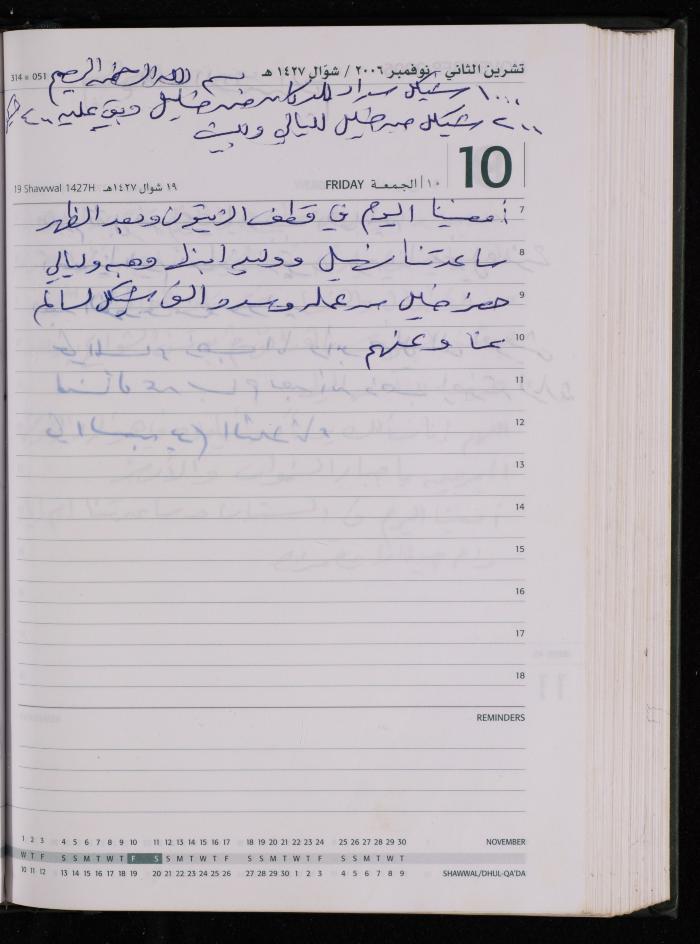 314 ■ 051 تشرين الثاني - نوفمبر ٢٠٠٦ / شوّال ١٤٢٧ هـ
بسم الله الرحمن الرحيم
١٠٠٠ شيكل سداد للدكانه من خليل وبقي عليه ٤٠٠
٢٠٠٠ شيكل من خليل لليالي وبيت
10
19 Shawwal 1427H ١٩ شوال ١٤٢٧هـ FRIDAY الجمعة ١٠
7 أمضينا اليوم في قطف الزيتون وبعد الظهر
8 ساعدتنا ووليد ابنها وهبه وليالي
9 حضر خليل من عمله وسدد الف شيكل لسالم
10 عنا وعنهم
11
12
13
14
15
16
17
18
REMINDERS
1 2 3 4 5 6 7 8 9 10 11 12 13 14 15 16 17 18 19 20 21 22 23 24 25 26 27 28 29 30 NOVEMBER
W T F S S M T W T F S S M T W T F S S M T W T F S S M T W T
10 11 12 13 14 15 16 17 18 19 20 21 22 23 24 25 26 27 28 29 30 1 2 3 4 5 6 7 8 9 SHAWWAL/DHUL-QA'DA